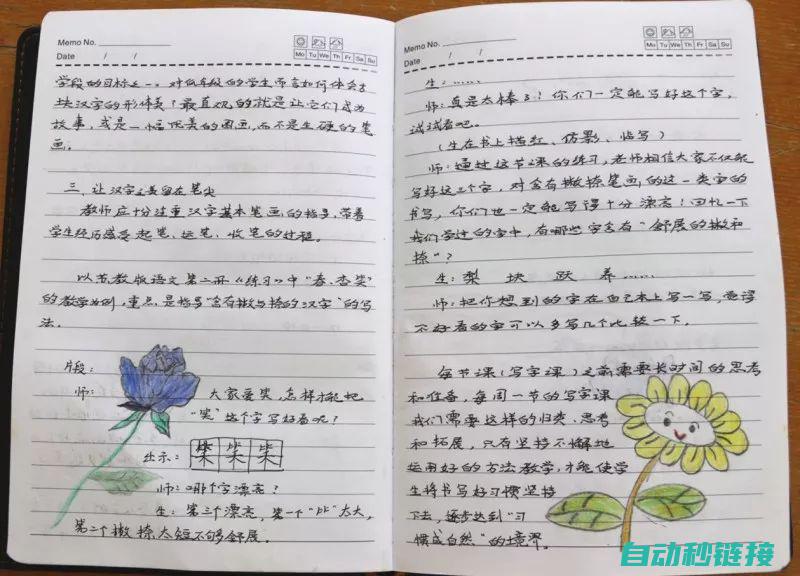 Memo No.
Date / /
Mo Tu We Th Fr Sa Su
学段的目标之一。对低年级的学生而言如何体会方
块汉字的形体美？最直观的就是让它们成为
故事，或是一幅优美的图画，而不是生硬的笔
画。
三、让汉字之美留在笔尖
教师应十分注重汉字基本笔画的指导，带着
学生经历感受起笔、运笔、收笔的过程。
以苏教版语文第二册《练习》中“春、杏、柴”
的教学为例，重点是指导“含有撇与捺的汉字”的写
法。
片段：
师： 大家爱柴，怎样才能把
“柴”这个字写好看呢？
出示： 柴 柴 柴
师：哪个字漂亮？
生：第三个漂亮，第一个“此”太大，
第二个撇捺太短不够舒展。
Memo No.
Date / /
Mo Tu We Th Fr Sa Su
生：……
师：真是太棒了！你们一定能写好这个字，
试试看吧。
（生在书上描红、仿影、临写）
师：通过这节课的练习，老师相信大家不仅能
写好这三个字，对含有撇捺笔画的这一类字的
书写，你们也一定能写得十分漂亮！回忆一下
我们学过的字中，有哪些字含有“舒展的撇和
捺”？
生：梨 块 跃 养……
师：把你想到的字在自己本上写一写，觉得
不好看的字可以多写几个比较一下。
每节课（写字课）之前需要长时间的思考
和准备，每周一节的写字课
我们需要这样的归类、思考
和拓展，只有坚持不懈地
运用好的方法教学，才能使学
生将书写好习惯坚持
下去，逐步达到“习
惯成自然”的境界。
自动秒链接